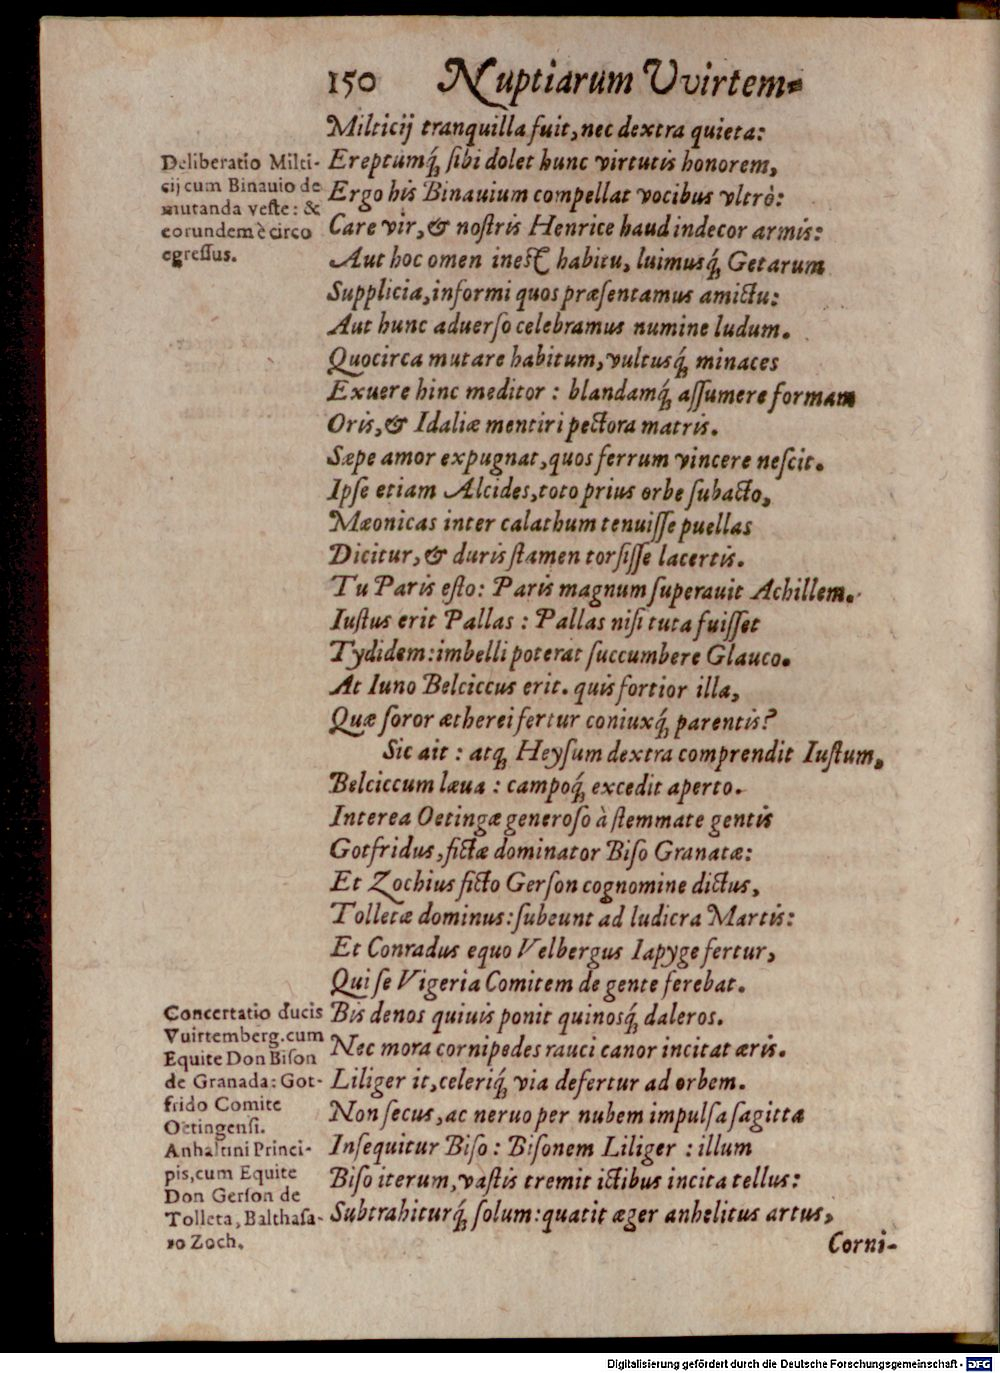 150 Nuptiarum Vvirtem⸗
Milticij tranquilla fuit, nec dextra quieta:
Deliberatio Milti-
cij cum Binauio de
mutanda veste: &
eorundem è circo
egressus.
Ereptumq́; sibi dolet hunc virtutis honorem,
Ergo his Binauium compellat vocibus vltrò:
Care vir, & nostris Henrice haud indecor armis:
Aut hoc omen inest habitu, luimusq́; Getarum
Supplicia, informi quos præsentamus amictu:
Aut hunc aduerso celebramus numine ludum.
Quocirca mutare habitum, vultusq́; minaces
Exuere hinc meditor: blandamq́; assumere formam
Oris, & Idaliæ mentiri pectora matris.
Sæpe amor expugnat, quos ferrum vincere nescit.
Ipse etiam Alcides, toto prius orbe subacto,
Mæonicas inter calathum tenuisse puellas
Dicitur, & duris stamen torsisse lacertis.
Tu Paris esto: Paris magnum superauit Achillem.
Iustus erit Pallas: Pallas nisi tuta fuisset
Tydidem: imbelli poterat succumbere Glauco.
At Iuno Belciccus erit. quis fortior illa,
Quæ soror ætherei fertur coniuxq́; parentis?
Sic ait: atq; Heysum dextra comprendit Iustum,
Belciccum læua: campoq́; excedit aperto.
Interea Oetingæ generoso à stemmate gentis
Gotfridus, fictæ dominator Biso Granatæ:
Et Zochius ficto Gerson cognomine dictus,
Tolletæ dominus: subeunt ad ludicra Martis:
Et Conradus equo Velbergus Iapyge fertur,
Qui se Vigeria Comitem de gente ferebat.
Concertatio ducis
Vuirtemberg. cum
Equite Don Bison
de Granada: Got-
frido Comite
Oetingensi.
Anhaltini Princi-
pis, cum Equite
Don Gerson de
Tolleta, Balthasa-
ro Zoch.
Bis denos quiuis ponit quinosq́; daleros.
Nec mora cornipedes rauci canor incitat æris.
Liliger it, celeriq́; via defertur ad orbem.
Non secus, ac neruo per nubem impulsa sagitta
Insequitur Biso: Bisonem Liliger: illum
Biso iterum, vastis tremit ictibus incita tellus:
Subtrahiturq́; solum: quatit æger anhelitus artus,
Corni-
Digitalisierung gefördert durch die Deutsche Forschungsgemeinschaft - DFG